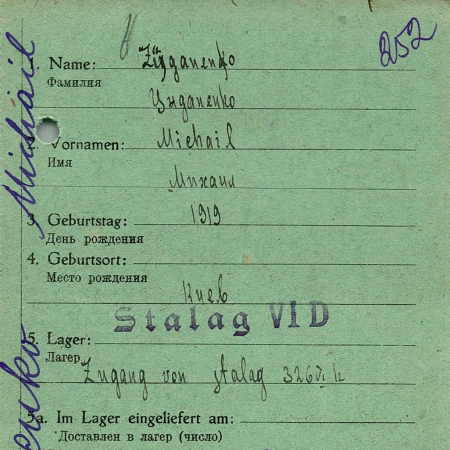 252
1. Name: Zuganenko
Фамилия
Цыганенко
2. Vornamen: Michail
Имя
Михаил
3. Geburtstag: 1919
День рождения
4. Geburtsort:
Место рождения
Киев
Stalag VI D
5. Lager:
Лагер
Zugang von Stalag 326 VI K
5a. Im Lager eingeliefert am:
Доставлен в лагер (число)
Michail